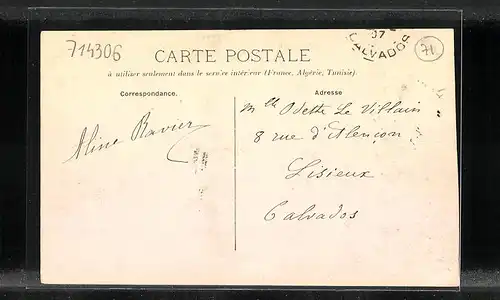 714306
CARTE POSTALE
07
CALVADOS
71
à utiliser seulement dans le service intérieur (France, Algérie, Tunisie).
Correspondance.
Adresse
Aline Ravier
Mlle Odette Le Villain
8 rue d'Alençon
Lisieux
Calvados